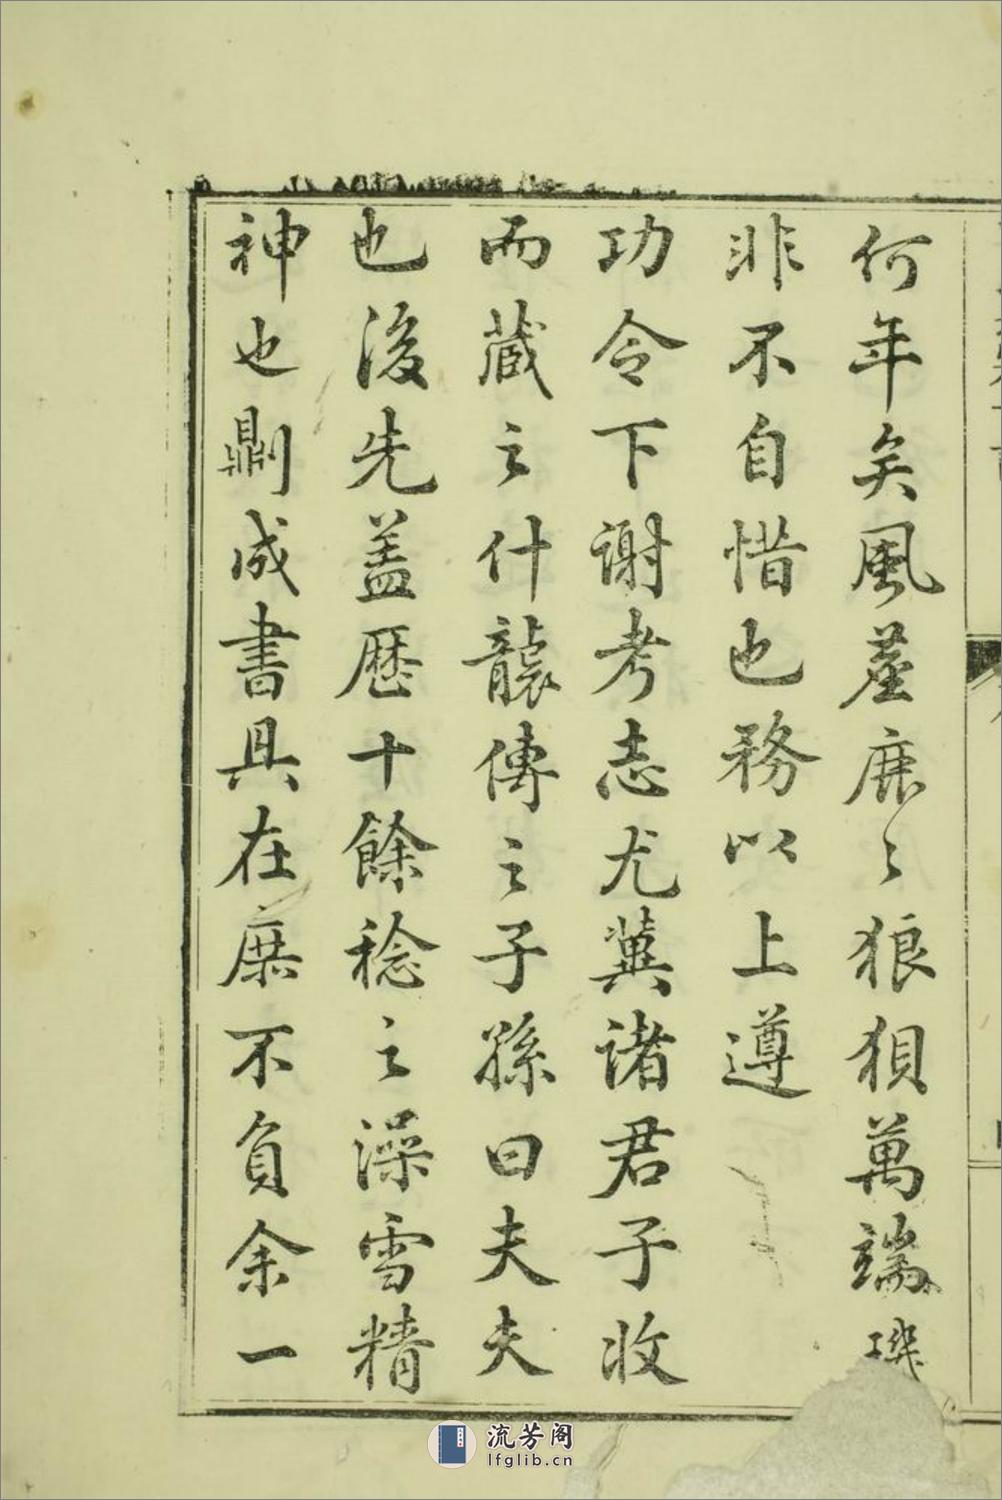 何年矣風塵鹿々狼狽萬端璣
非不自惜也務以上遵
功令下謝考志尤冀諸君子收
而蔵之什襲傳之子孫曰夫夫
也後先蓋歴十餘稔之澡雪精
神也劘成書具在庶不負余一
流芳阁
lfglib.cn